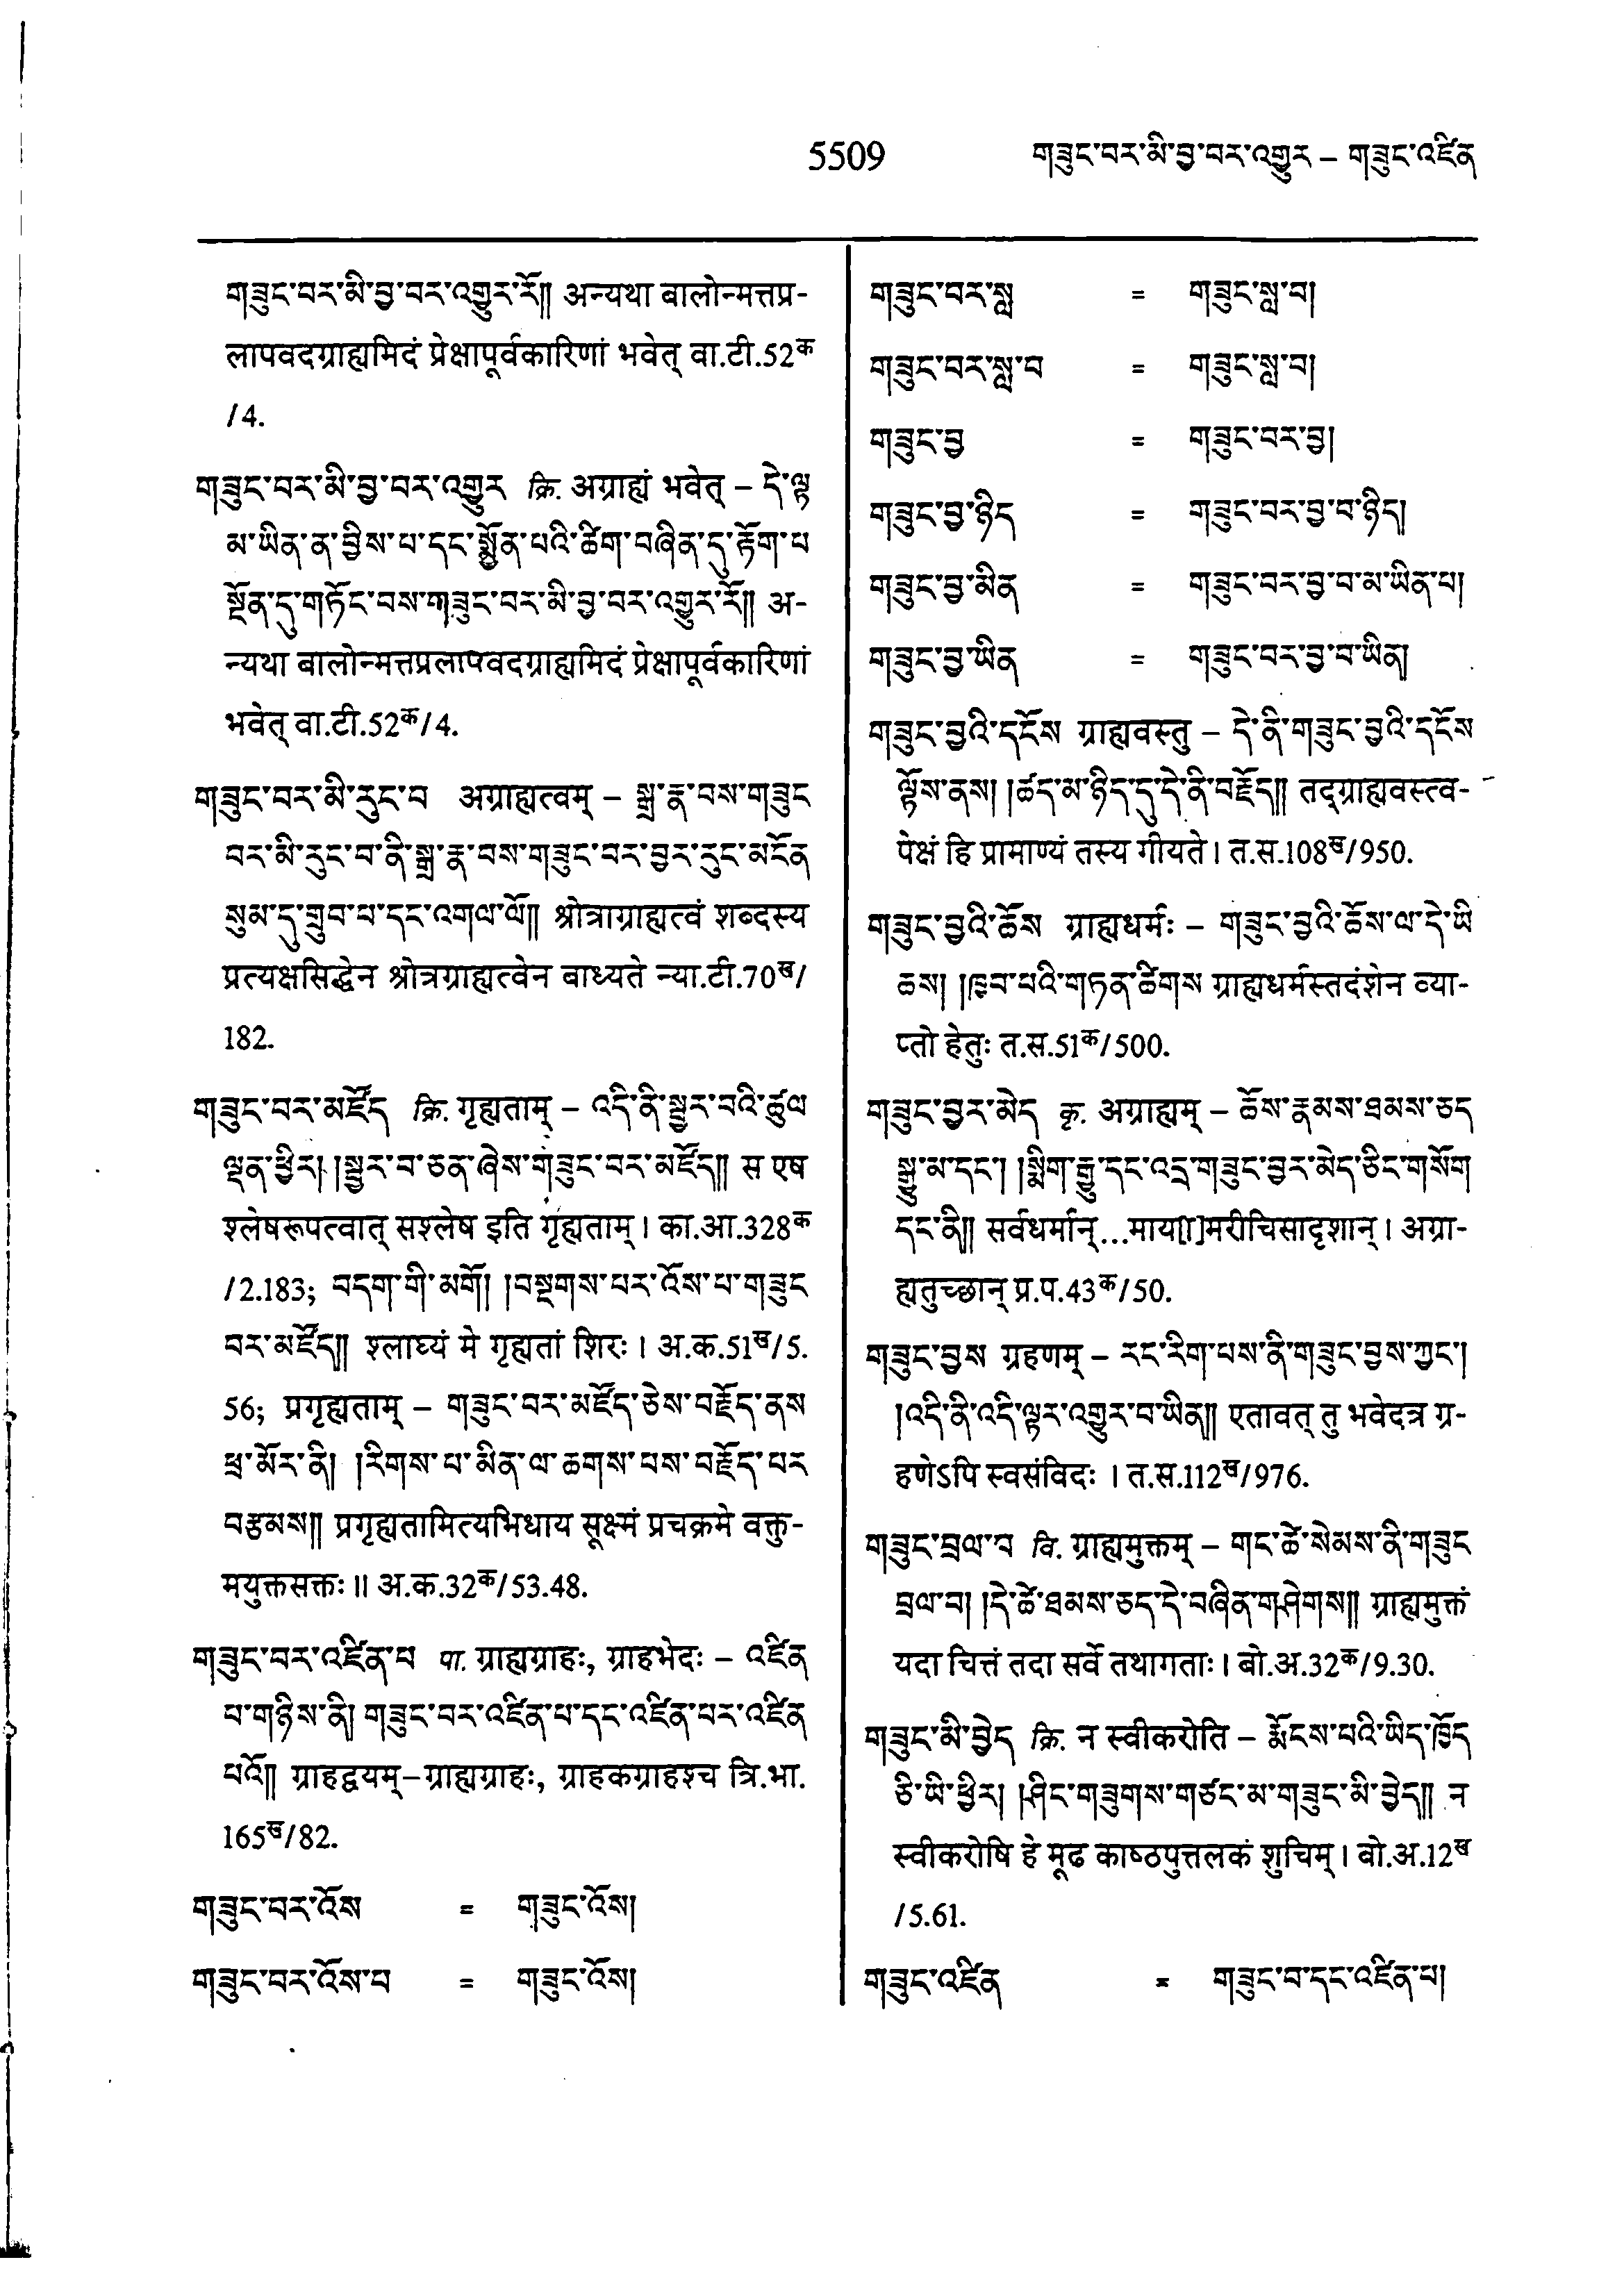 5509 གཟུང་བར་མི་བྱ་བར་འགྱུར – གཟུང་འཛིན
གཟུང་བར་མི་བྱ་བར་འགྱུར་རོ༎ अन्यथा बालोन्मत्तप्र-
लापवदग्राह्यमिदं प्रेक्षापूर्वकारिणां भवेत् वा.टी.52क
/4.
གཟུང་བར་མི་བྱ་བར་འགྱུར क्रि. अग्राह्यं भवेत् – དེ་ལྟ
མ་ཡིན་ན་བྱིས་པ་དང་སྨྱོན་པའི་ཚིག་བཞིན་དུ་རྟོག་པ
སྔོན་དུ་གཏོང་བས་གཟུང་བར་མི་བྱ་བར་འགྱུར་རོ༎ अ-
न्यथा बालोन्मत्तप्रलापवदग्राह्यमिदं प्रेक्षापूर्वकारिणां
भवेत् वा.टी.52क/4.
གཟུང་བར་མི་རུང་བ अग्राह्यत्वम् – སྒྲ་རྣ་བས་གཟུང
བར་མི་རུང་བ་ནི་སྒྲ་རྣ་བས་གཟུང་བར་བྱར་རུང་མངོན
སུམ་དུ་གྲུབ་པ་དང་འགལ་ལོ༎ श्रोत्राग्राह्यत्वं शब्दस्य
प्रत्यक्षसिद्धेन श्रोत्रग्राह्यत्वेन बाध्यते न्या.टी.70ख/
182.
གཟུང་བར་མཛོད क्रि. गृह्यताम् – འདི་ནི་སྦྱར་བའི་ཚུལ
ལྡན་ཕྱིར། །སྦྱར་བ་ཅན་ཞེས་གཟུང་བར་མཛོད༎ स एष
श्लेषरूपत्वात् सश्लेष इति गृह्यताम् । का.आ.328क
/2.183; བདག་གི་མགོ། །བསྔགས་པར་འོས་པ་གཟུང
བར་མཛོད༎ श्लाघ्यं मे गृह्यतां शिरः । अ.क.51ख/5.
56; प्रगृह्यताम् – གཟུང་བར་མཛོད་ཅེས་བརྗོད་ནས
ཕྲ་མོར་ནི། །རིགས་པ་མིན་ལ་ཆགས་པས་བརྗོད་པར
བརྩམས༎ प्रगृह्यतामित्यभिधाय सूक्ष्मं प्रचक्रमे वक्तु-
मयुक्तसक्तः ॥ अ.क.32क/53.48.
གཟུང་བར་འཛིན་པ पा. ग्राह्यग्राहः, ग्राहभेदः – འཛིན
པ་གཉིས་ནི། གཟུང་བར་འཛིན་པ་དང་འཛིན་པར་འཛིན
པའོ༎ ग्राहद्वयम्–ग्राह्यग्राहः, ग्राहकग्राहश्च त्रि.भा.
165ख/82.
གཟུང་བར་འོས = གཟུང་འོས།
གཟུང་བར་འོས་པ = གཟུང་འོས།
གཟུང་བར་སླ = གཟུང་སླ་བ།
གཟུང་བར་སླ་བ = གཟུང་སླ་བ།
གཟུང་བྱ = གཟུང་བར་བྱ།
གཟུང་བྱ་ཉིད = གཟུང་བར་བྱ་བ་ཉིད།
གཟུང་བྱ་མིན = གཟུང་བར་བྱ་བ་མ་ཡིན་པ།
གཟུང་བྱ་ཡིན = གཟུང་བར་བྱ་བ་ཡིན།
གཟུང་བྱའི་དངོས ग्राह्यवस्तु – དེ་ནི་གཟུང་བྱའི་དངོས
ལྟོས་ནས། །ཚད་མ་ཉིད་དུ་དེ་ནི་བརྗོད༎ तद्ग्राह्यवस्त्व-
पेक्षं हि प्रामाण्यं तस्य गीयते । त.स.108ख/950.
གཟུང་བྱའི་ཆོས ग्राह्यधर्मः – གཟུང་བྱའི་ཆོས་ལ་དེ་ཡི
ཆས། །ཁྱབ་པའི་གཏན་ཚིགས ग्राह्यधर्मस्तदंशेन व्या-
प्तो हेतुः त.स.51क/500.
གཟུང་བྱར་མེད कृ. अग्राह्यम् – ཆོས་རྣམས་ཐམས་ཅད
སྒྱུ་མ་དང་། །སྨིག་རྒྱུ་དང་འདྲ་གཟུང་བྱར་མེད་ཅིང་གསོག
དང་ནི༎ सर्वधर्मान्...माय[ा]मरीचिसादृशान् । अग्रा-
ह्यतुच्छान् प्र.प.43क/50.
གཟུང་བྱས ग्रहणम् – རང་རིག་པས་ནི་གཟུང་བྱས་ཀྱང་།
།འདི་ནི་འདི་ལྟར་འགྱུར་བ་ཡིན༎ एतावत् तु भवेदत्र ग्र-
हणेऽपि स्वसंविदः । त.स.112ख/976.
གཟུང་བྲལ་བ वि. ग्राह्यमुक्तम् – གང་ཚེ་སེམས་ནི་གཟུང
བྲལ་བ། །དེ་ཚེ་ཐམས་ཅད་དེ་བཞིན་གཤེགས༎ ग्राह्यमुक्तं
यदा चित्तं तदा सर्वे तथागताः । बो.अ.32क/9.30.
གཟུང་མི་བྱེད क्रि. न स्वीकरोति – རྨོངས་པའི་ཡིད་ཁྱོད
ཅི་ཡི་ཕྱིར། །ཤིང་གཟུགས་གཙང་མ་གཟུང་མི་བྱེད༎ न
स्वीकरोषि हे मूढ काष्ठपुत्तलकं शुचिम् । बो.अ.12ख
/5.61.
གཟུང་འཛིན = གཟུང་བ་དང་འཛིན་པ།